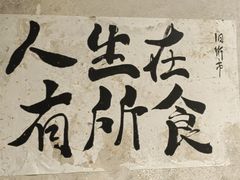 人生在
有所食
旧街市